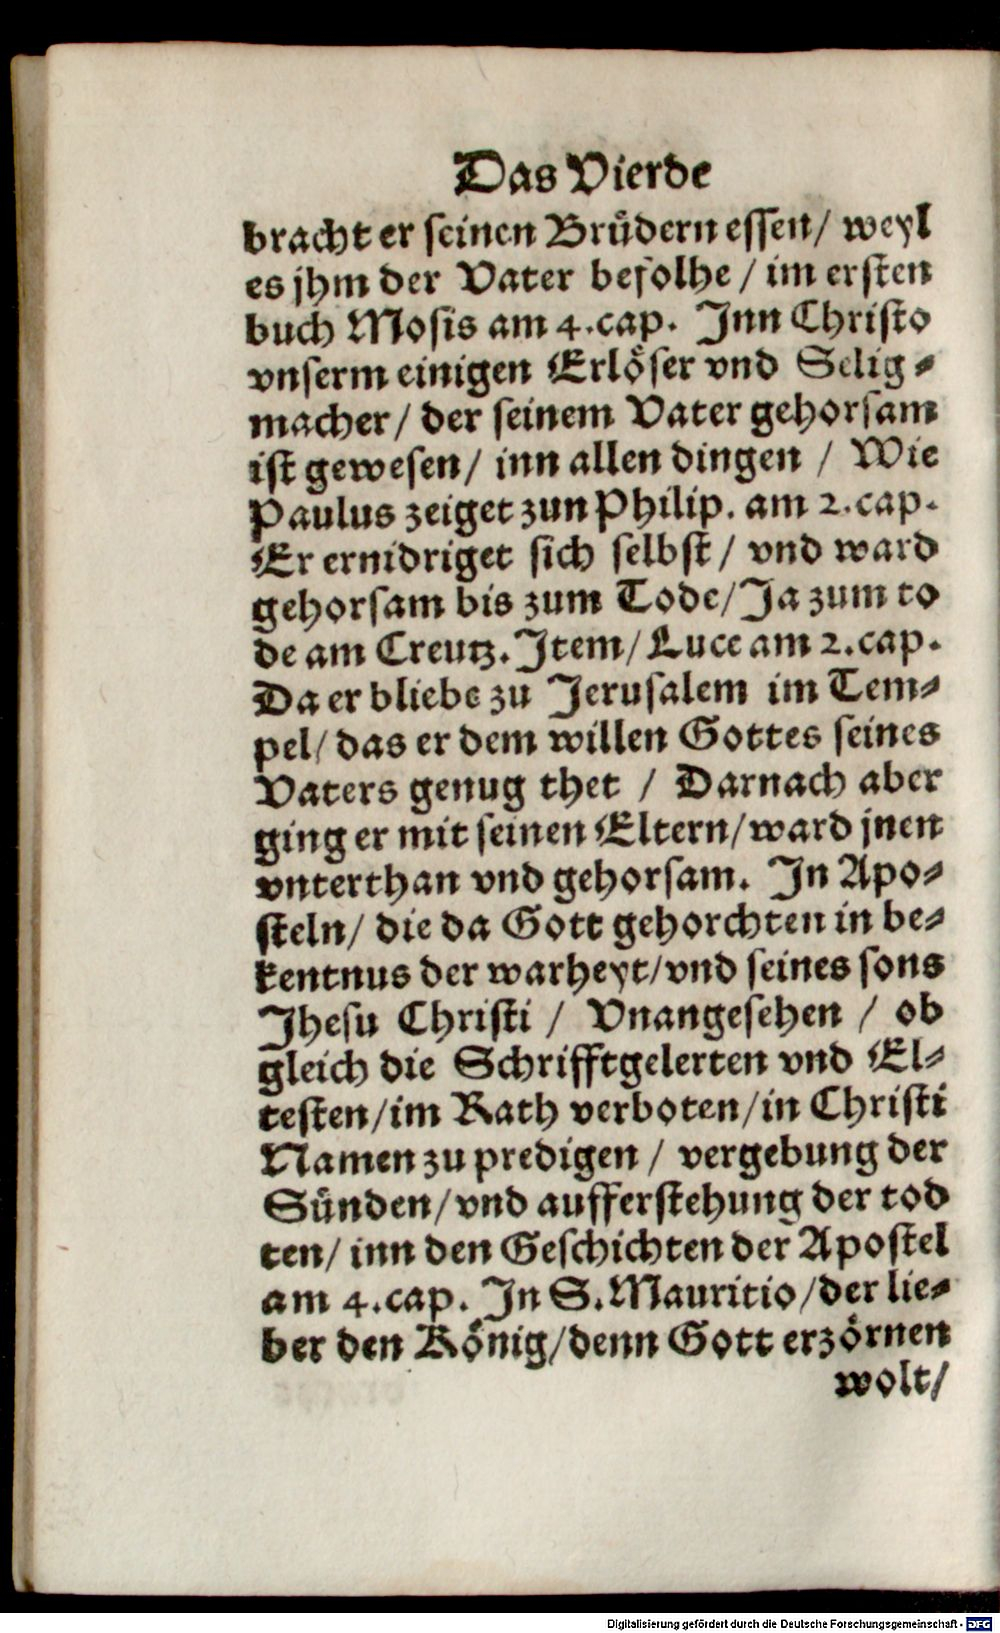 Das Vierde
bracht er seinen Brüdern essen/ weyl
es jhm der Vater befolhe / im ersten
buch Mosis am 4.cap. Inn Christo
vnserm einigen Erlöser vnd Selig⸗
macher/ der seinem Vater gehorsam
ist gewesen/ inn allen dingen / Wie
Paulus zeiget zun Philip. am 2.cap.
Er ernidriget sich selbst/ vnd ward
gehorsam bis zum Tode/ Ja zum to
de am Creutz. Item/ Luce am 2.cap.
Da er bliebe zu Jerusalem im Tem⸗
pel/ das er dem willen Gottes seines
Vaters genug thet / Darnach aber
ging er mit seinen Eltern/ ward jnen
vnterthan vnd gehorsam. In Apo⸗
steln/ die da Gott gehorchten in be⸗
kentnus der warheyt/ vnd seines sons
Jhesu Christi / Vnangesehen / ob
gleich die Schrifftgelerten vnd El⸗
testen/ im Rath verboten/ in Christi
Namen zu predigen / vergebung der
Sünden/ vnd aufferstehung der tod
ten/ inn den Geschichten der Apostel
am 4.cap. In S. Mauritio/ der lie⸗
ber den König/ denn Gott erzörnen
wolt/
Digitalisierung gefördert durch die Deutsche Forschungsgemeinschaft - DFG